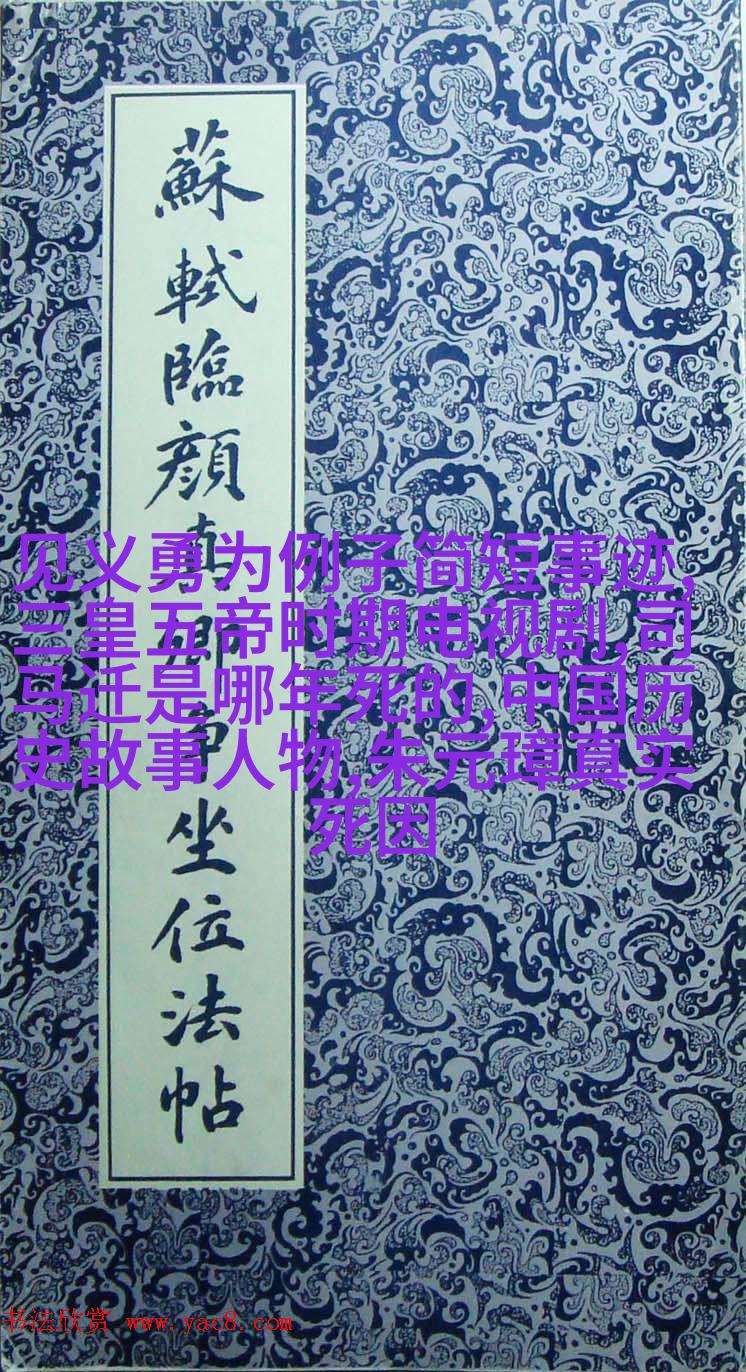 蘇軾臨顏真卿爭坐位法帖
见义勇为例子简短事迹,
三皇五帝时期电视剧,司
马迁是哪年死的,中国历
史故事人物,朱元璋真实
死因
书法欣赏 www.yac8.com